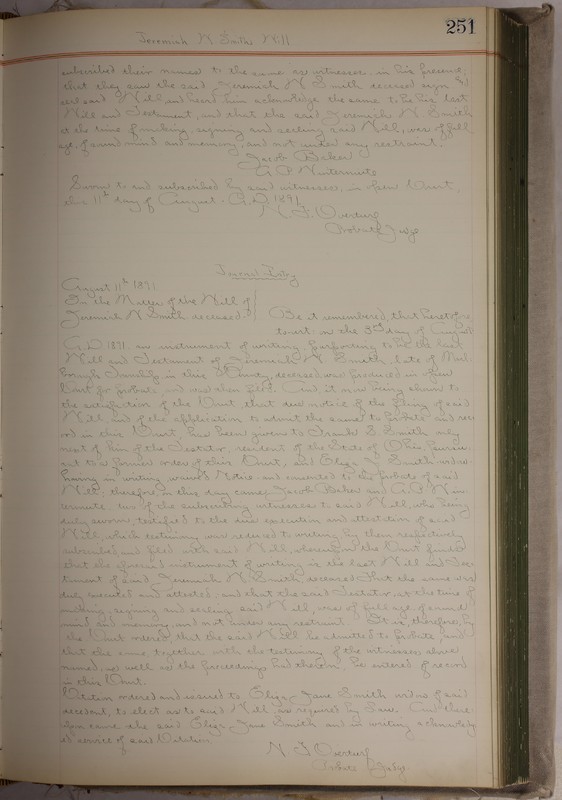 251
Jeremiah N. Smiths Will
subscribed their names to the same as witnesses, in his presence,
that they saw the said Jeremiah N. Smith deceased sign and
seal said Will and heard him acknowledge the same to be his last
Will and Testament, and that the said Jeremiah N. Smith
at the time of making, signing and sealing said Will, was of full
age, of sound mind and memory, and not under any restraint.
Jacob Baker
A. P. Wintermute
Sworn to and subscribed by said witnesses, in open Court,
this 11th day of August A.D. 1891.
N. F. Overturf
Probate Judge
Journal Entry
August 11th 1891
In the Matter of the Will of
Jeremiah N Smith deceased.
Be it remembered, that heretofore
to wit: on the 3rd day of August
A.D. 1891 an instrument of writing, purporting to be the last
Will and Testament of Jeremiah N. Smith, late of Marl-
borough Township, in this County, deceased, was produced in open
Court for probate, and was then filed. And it now being shown to
the satisfaction of the Court that due notice of the filing of said
Will, and of the application to admit the same to probate and rec-
ord in this Court, has been given to B. Smith only
next of kin of the Testator, resident of the State of Ohio, pursu-
ant to a former order of this Court, and Eliza J. Smith widow
having in writing waived Notice and consented to the probate of said
Will; therefore, on this day came Jacob Baker and A. P. Win-
termute, two of the subscribing witnesses to said Will, who being
duly sworn, testified to the due execution and attestation of said
Will, which testimony was reduced to writing by them respectively
subscribed and filed with said Will, whereupon the Court finds
that the aforesaid instrument of writing is the last Will and Tes-
tament of said Jeremiah N. Smith deceased that the same was
duly executed and attested; and that the said Testator, at the time of
making, signing and sealing said Will, was of full age, of sound
mind and memory, and not under any restraint. It is, therefore, by
the Court ordered that the said Will be admitted to probate, and
that the same, together with the testimony of the witnesses above
named, as well as the proceedings had therein, be entered of record
in this Court.
Citation ordered and issued to Eliza Jane Smith widow of said
decedent, to elect as to said Will, as required by Law. And there-
upon came the said Eliza Jane Smith and in writing acknowledg-
ed service of said Citation
N. F. Overturf
Probate Judge.